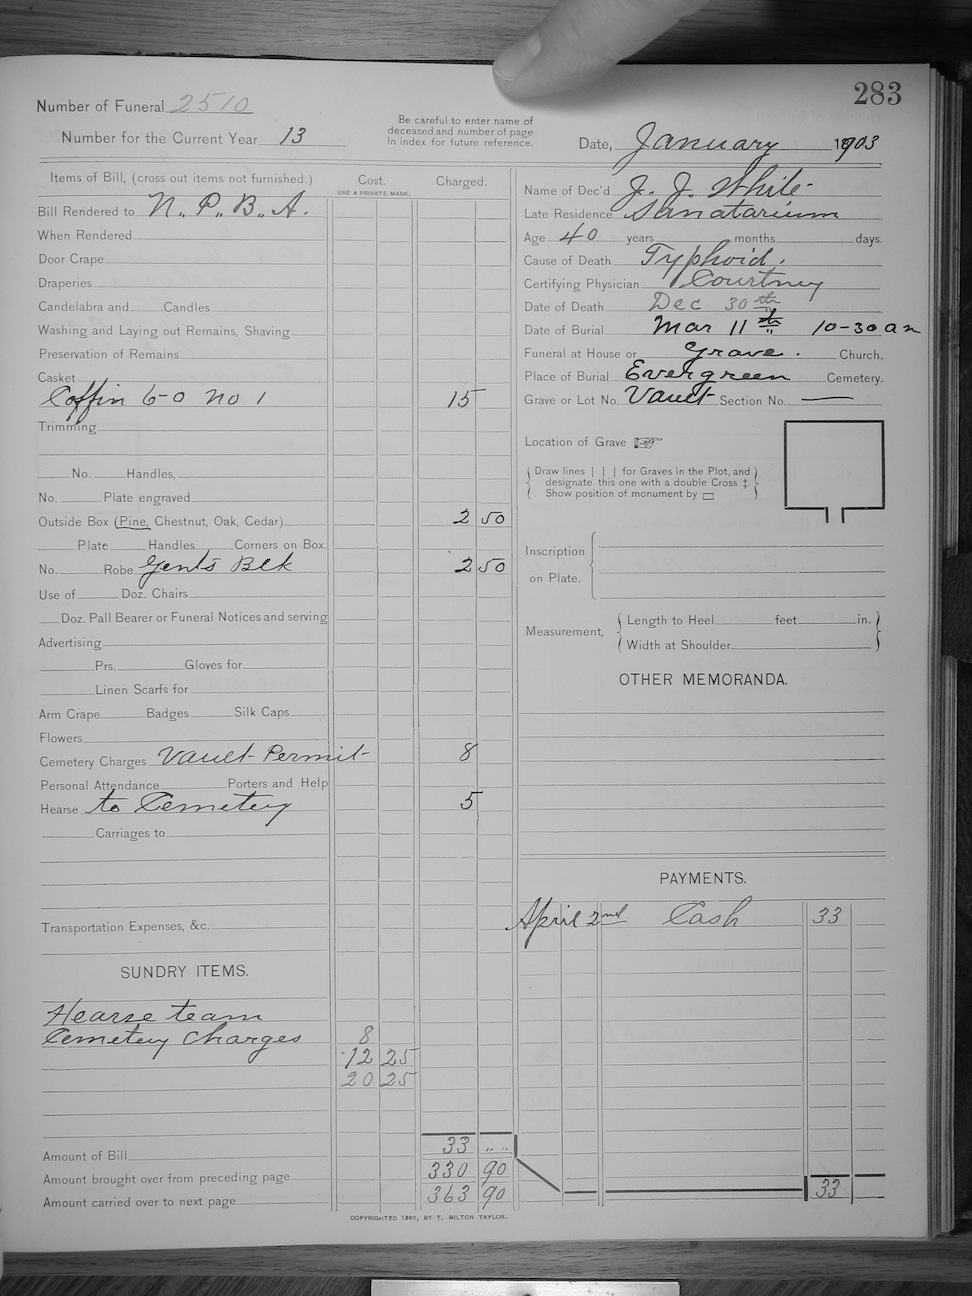 283
Number of Funeral 2510
Number for the Current Year 13
Be careful to enter name of
deceased and number of page
in index for future reference.
Date, January 1903
Items of Bill, (cross out items not furnished.)
Cost.
USE A PRIVATE MARK.
Charged.
Bill Rendered to N.P.B.A.
When Rendered
Door Crape
Draperies
Candelabra and Candles
Washing and Laying out Remains, Shaving
Preservation of Remains
Casket
Coffin 6-0 No 1 15
Trimming
No. Handles,
No. Plate engraved
Outside Box (Pine, Chestnut, Oak, Cedar) 2 50
Plate Handles Corners on Box.
No. Robe Gents Blk 2 50
Use of Doz. Chairs
Doz. Pall Bearer or Funeral Notices and serving
Advertising
Prs. Gloves for
Linen Scarfs for
Arm Crape Badges Silk Caps
Flowers
Cemetery Charges Vault Permit 8
Personal Attendance Porters and Help
Hearse to Cemetery 5
Carriages to
Transportation Expenses, &c.
SUNDRY ITEMS.
Hearse team
Cemetery Charges 8
12 25
20 25
Amount of Bill 33 " "
Amount brought over from preceding page 330 90
Amount carried over to next page 363 90
Name of Dec'd J. J. White
Late Residence Sanatarium
Age 40 years months days.
Cause of Death Typhoid.
Certifying Physician Courtney
Date of Death Dec 30th
Date of Burial Mar 11th 10-30 am
Funeral at House or Grave. Church.
Place of Burial Evergreen Cemetery.
Grave or Lot No. Vault Section No. —
Location of Grave ☞
Draw lines | | | for Graves in the Plot, and
designate this one with a double Cross ‡.
Show position of monument by ▭
Inscription
on Plate.
Measurement, Length to Heel feet in.
Width at Shoulder
OTHER MEMORANDA.
PAYMENTS.
April 2nd Cash 33
33
COPYRIGHTED 1890, BY T. MILTON TAYLOR.